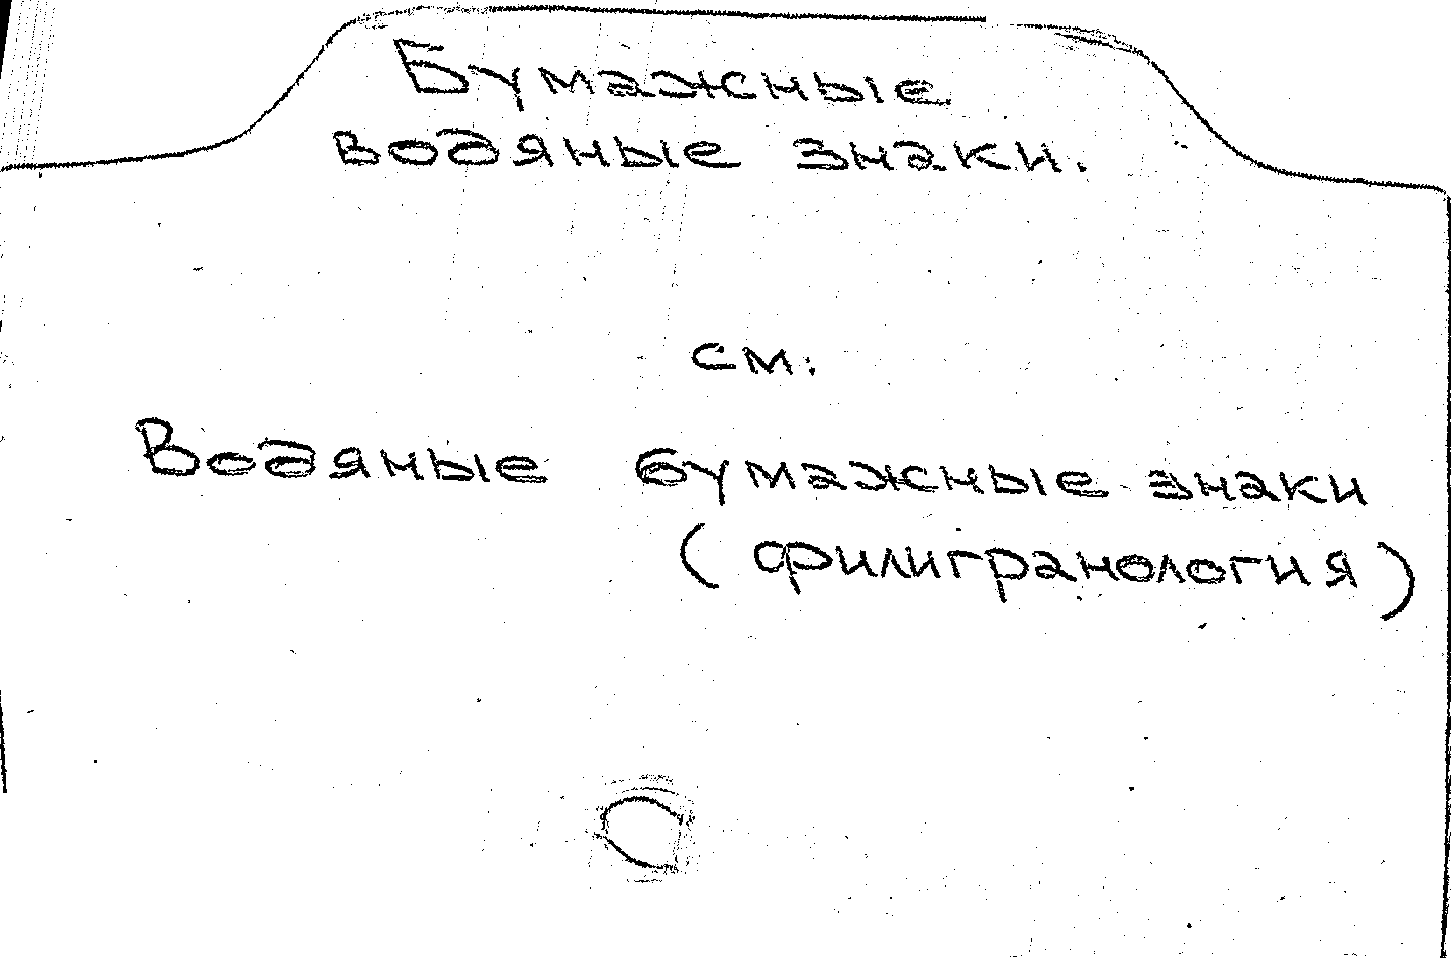 Бумажные
водяные знаки.
см.
Водяные бумажные знаки
(филигранология)